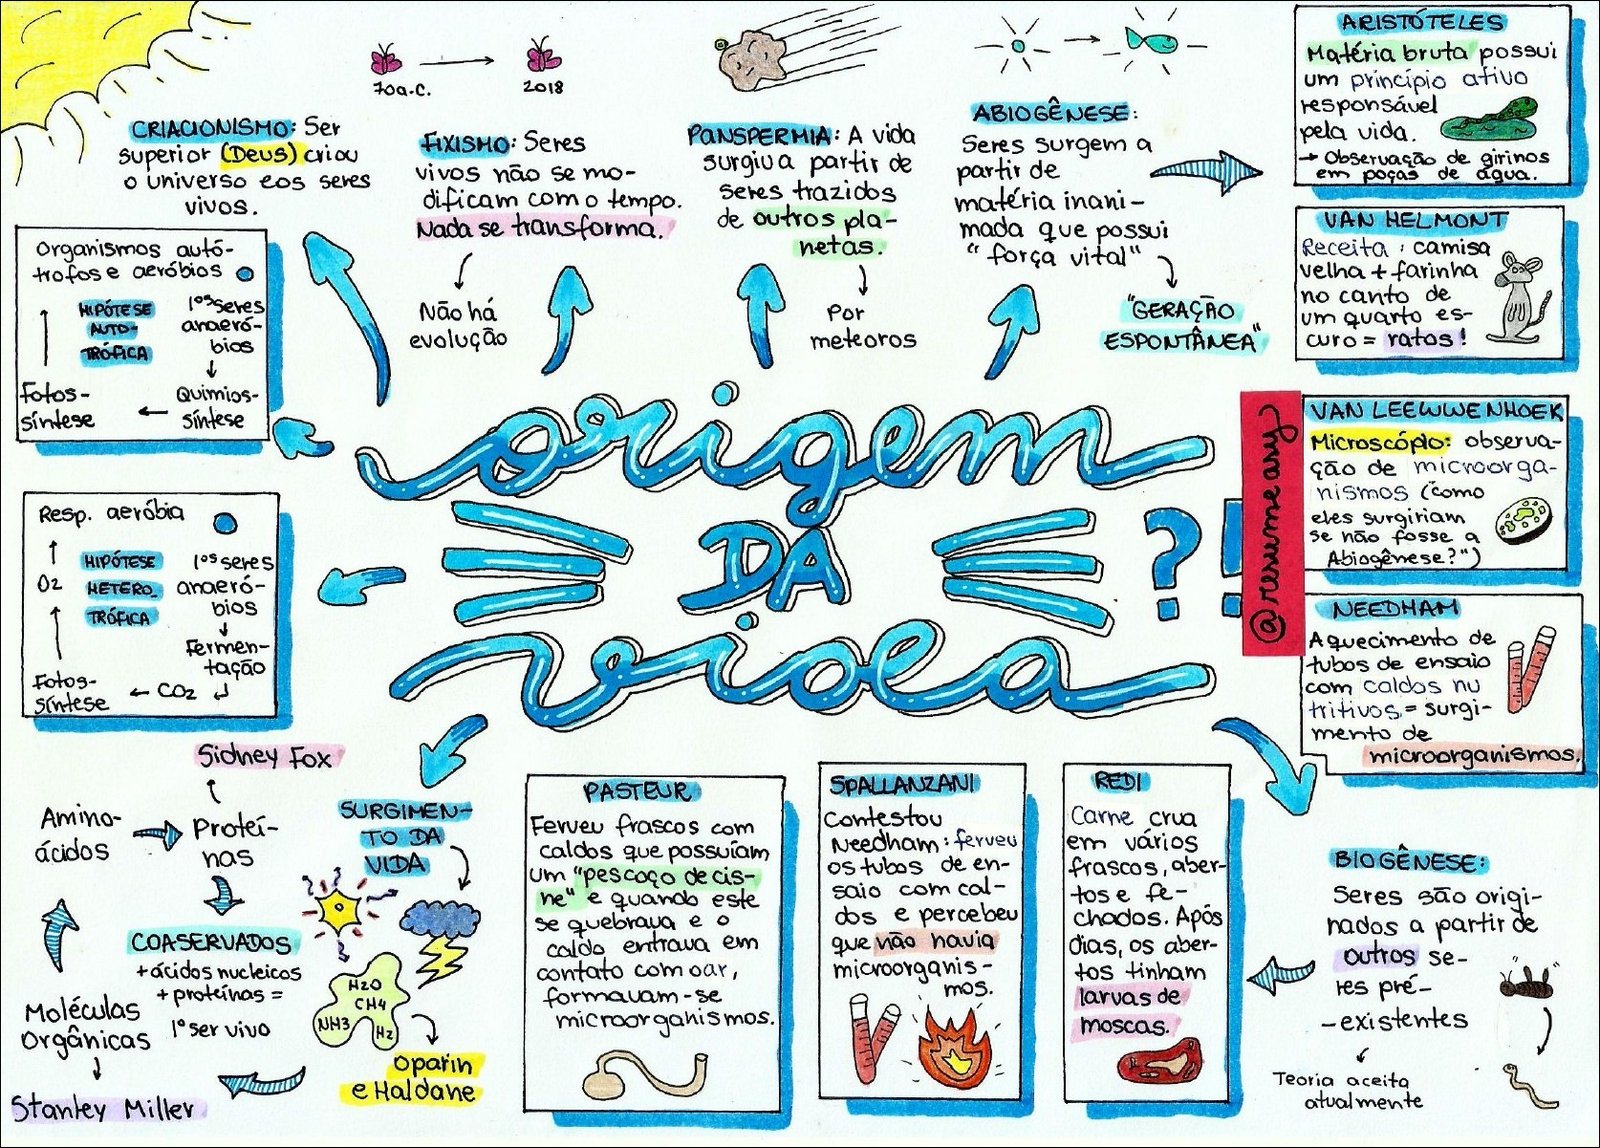 CRIACIONISMO: Ser
superior (Deus) criou
o universo e os seres
vivos.
70a.C.
2018
FIXISMO: Seres
vivos não se mo-
dificam com o tempo.
Nada se transforma.
Não há
evolução
PANSPERMIA: A vida
surgiu a partir de
seres trazidos
de outros pla-
netas.
Por
meteoros
ABIOGÊNESE:
Seres surgem a
partir de
matéria inani-
mada que possui
"força vital"
"GERAÇÃO
ESPONTÂNEA"
ARISTÓTELES
Matéria bruta possui
um princípio ativo
responsável
pela vida.
→ Observação de girinos
em poças de água.
VAN HELMONT
Receita: camisa
velha + farinha
no canto de
um quarto es-
curo = ratos!
VAN LEEWWENHOEK
Microscópio: observa-
ção de microorga-
nismos ("como
eles surgiriam
se não fosse a
Abiogênese?")
NEEDHAM
Aquecimento de
tubos de ensaio
com caldos nu
tritivos = surgi-
mento de
microorganismos.
@resumeeasy
origem
DA
vida
?!
Organismos autó-
trofos e aeróbios
HIPÓTESE
AUTO-
TRÓFICA
1ºs seres
anaeró-
bios
Quimios-
síntese
Fotos-
síntese
Resp. aeróbia
O2
HIPÓTESE
HETERO_
TRÓFICA
1ºs seres
anaeró-
bios
Fermen-
tação
CO2
Fotos-
síntese
Sidney Fox
Amino-
ácidos
Proteí-
nas
COASERVADOS
+ácidos nucleicos
+proteínas =
1º ser vivo
Moléculas
Orgânicas
Stanley Miller
SURGIMEN-
TO DA
VIDA
H2O
CH4
NH3
H2
Oparin
e Haldane
PASTEUR
Ferveu frascos com
caldos que possuíam
um "pescoço de cis-
ne" e quando este
se quebrava e o
caldo entrava em
contato com o ar,
formavam-se
microorganismos.
SPALLANZANI
Contestou
Needham: ferveu
os tubos de en-
saio com cal-
dos e percebeu
que não havia
microorganis-
mos.
REDI
Carne crua
em vários
frascos, aber-
tos e fe-
chados. Após
dias, os aber-
tos tinham
larvas de
moscas.
BIOGÊNESE:
Seres são origi-
nados a partir de
outros se-
res pré-
-existentes
Teoria aceita
atualmente